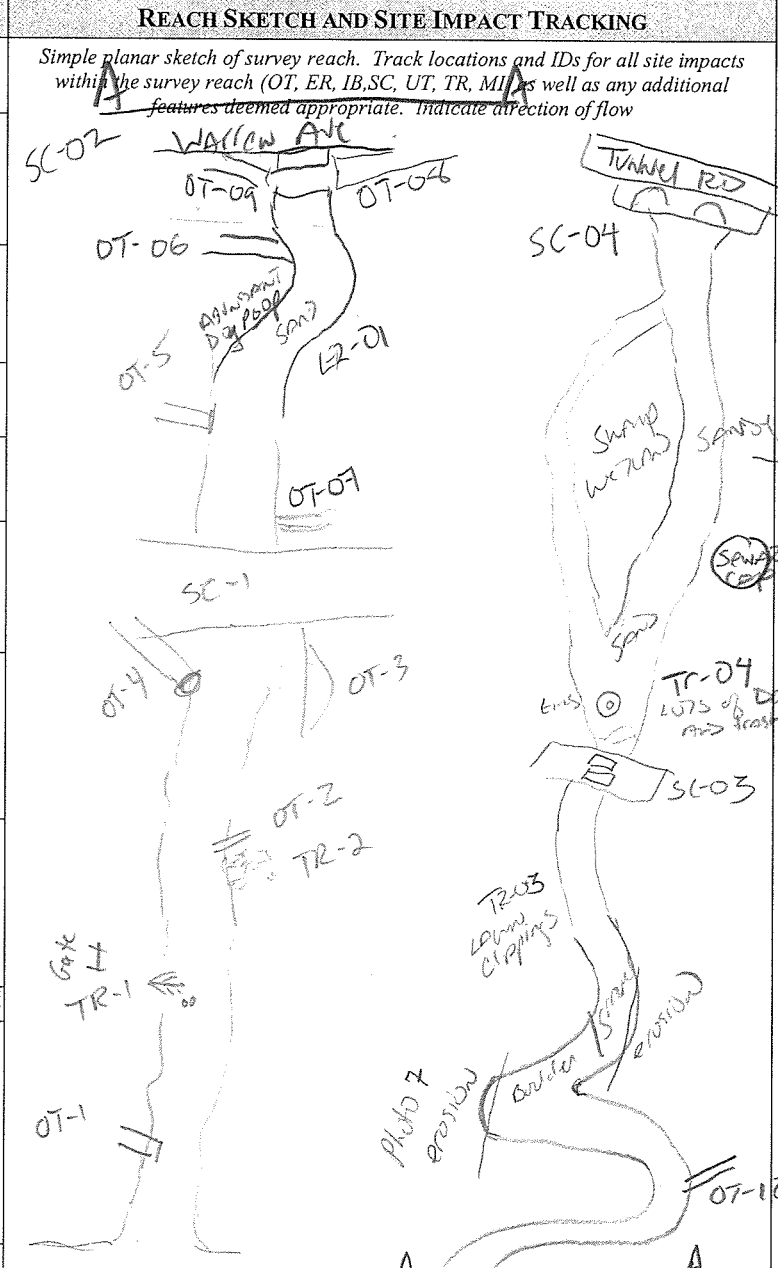 REACH SKETCH AND SITE IMPACT TRACKING
Simple planar sketch of survey reach. Track locations and IDs for all site impacts
within the survey reach (OT, ER, IB,SC, UT, TR, MI) as well as any additional
features deemed appropriate. Indicate direction of flow
A
A
SC-02
WARREN AVE
OT-09
OT-08
OT-06
ABUNDANT
Dog Poop
SAND
OT-5
OT-07
SC-1
OT-4
OT-3
OT-2
TR-2
Gate
H
TR-1
OT-1
TUNNEL RD
SC-04
SWAMP
WETLAND
SANDY
SAND
TR-04
LOTS of
AND
SC-03
TR-03
LAWN
Clippings
erosion
Boulder
Photo 7
erosion
OT-1
A
A